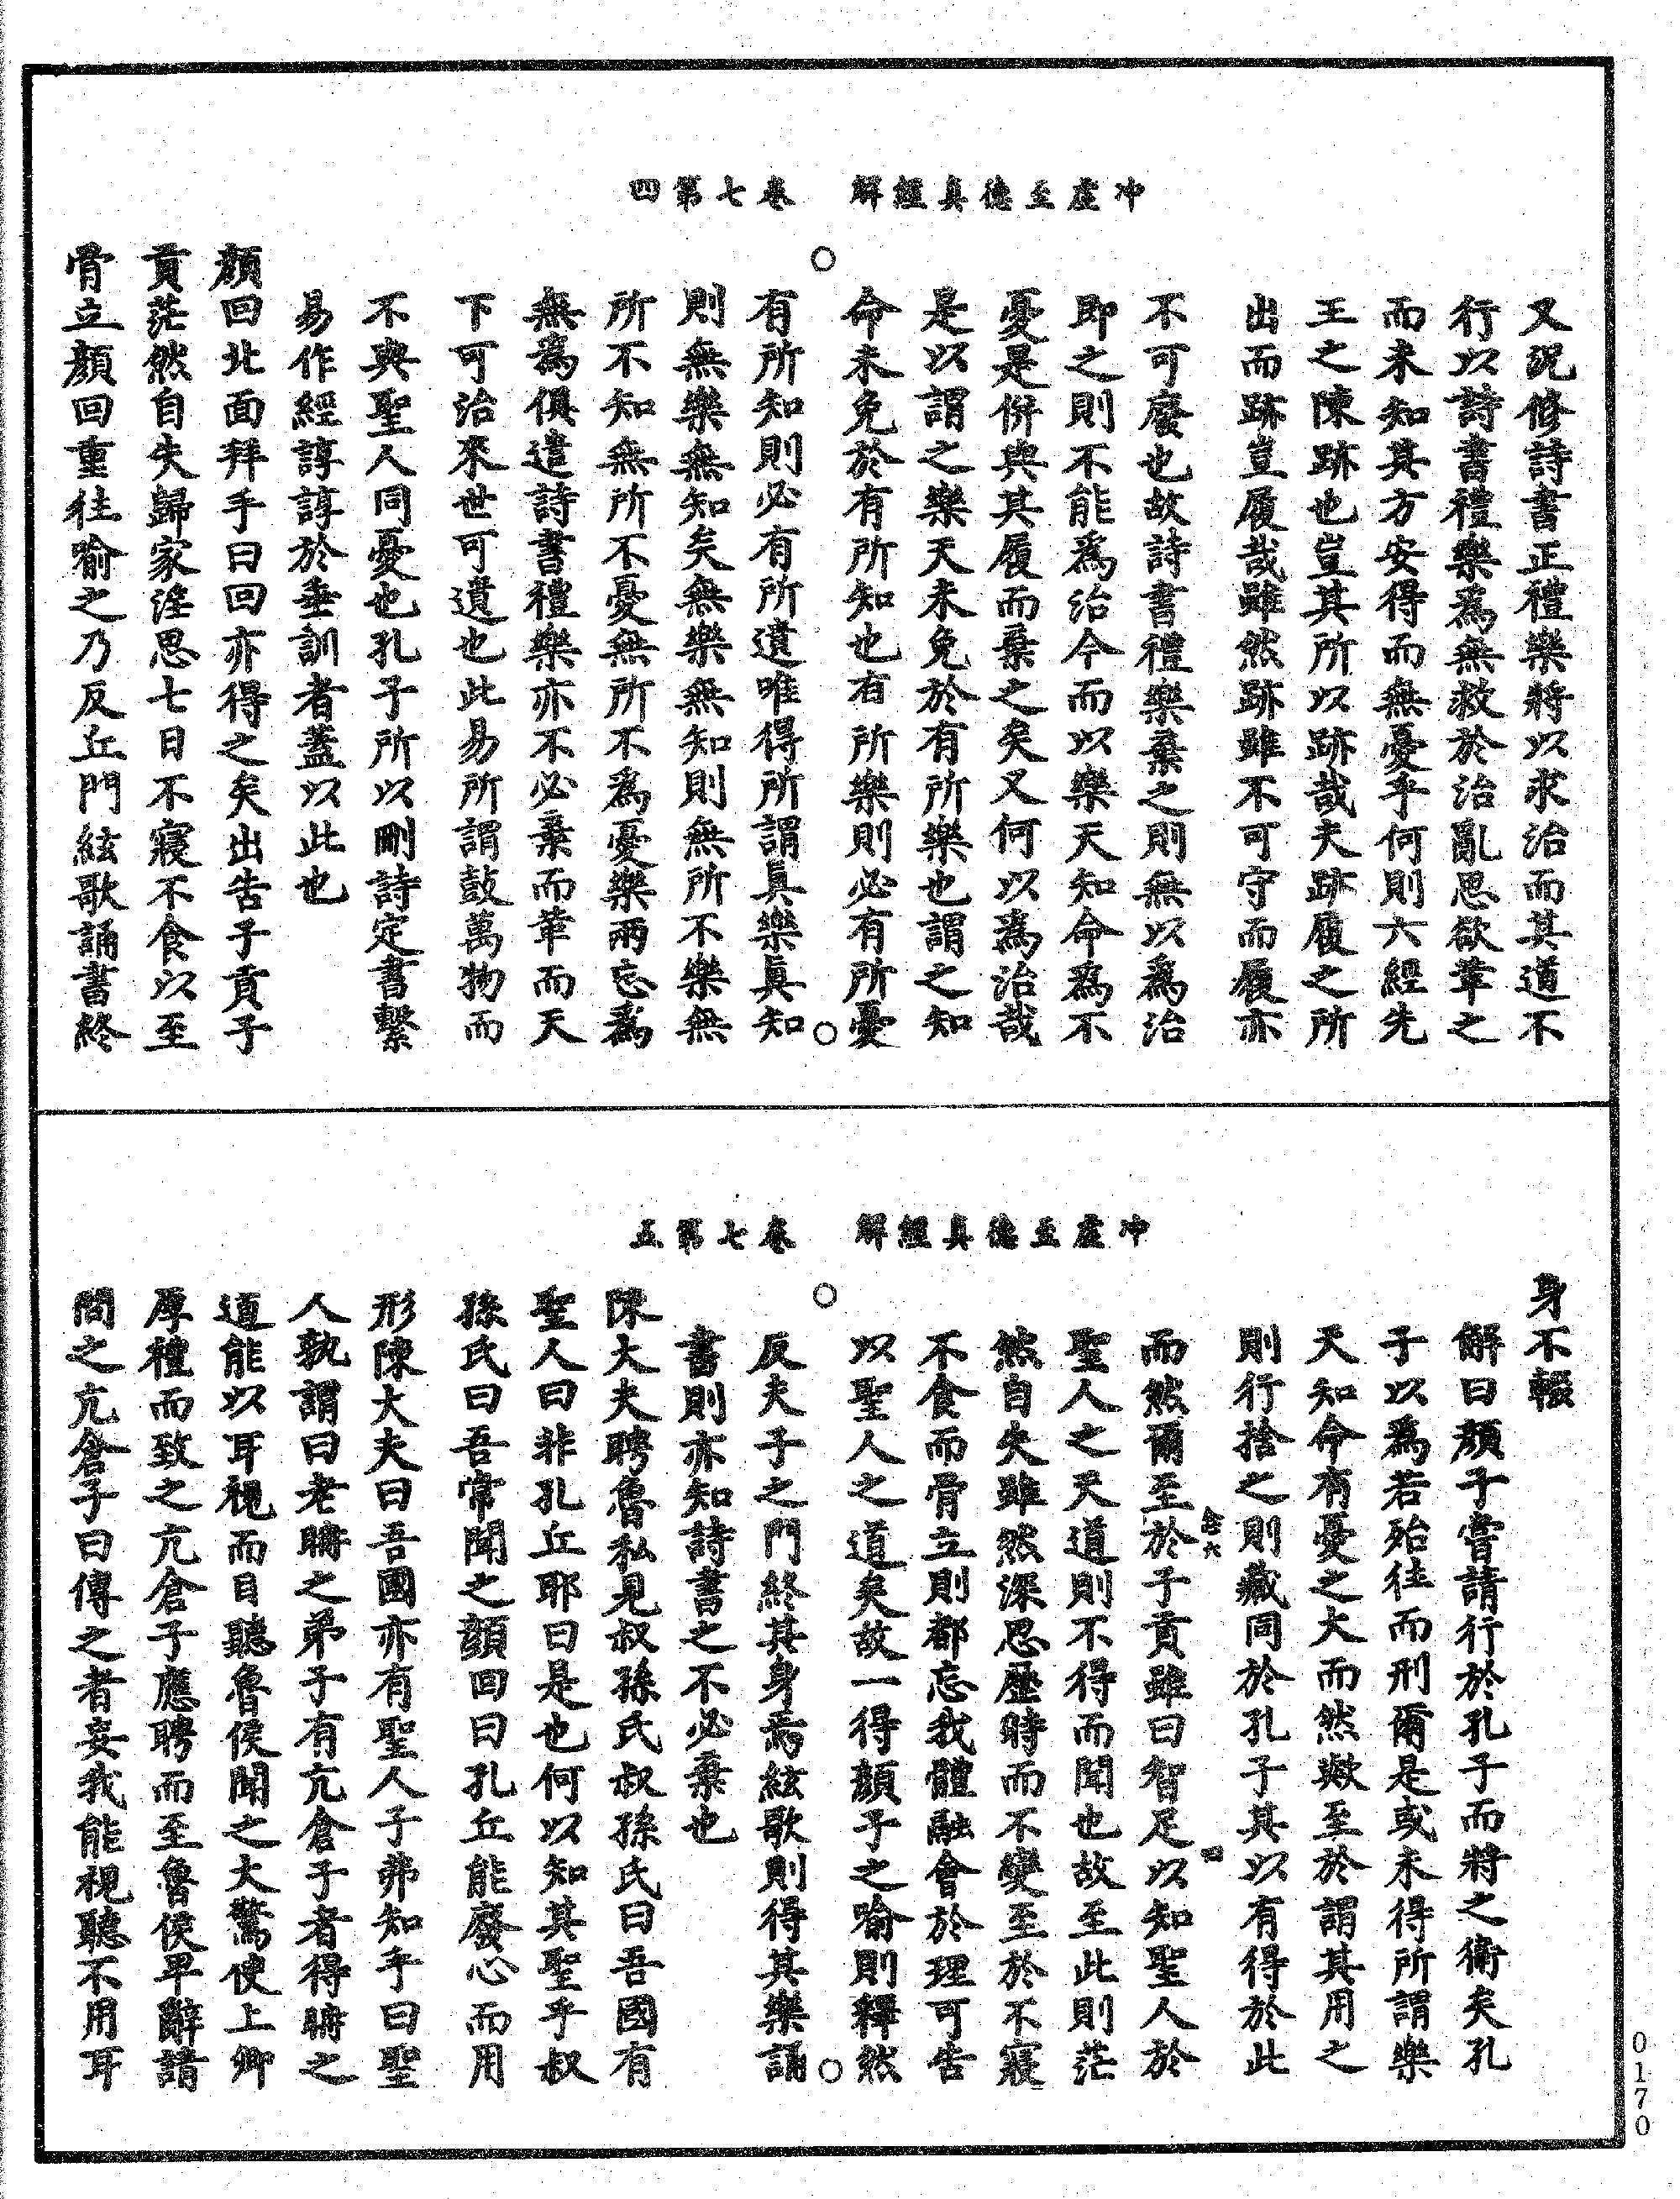 冲虛至德真經解　卷七第四
又況修詩書正禮樂將以求治而其道不
行以詩書禮樂為無救於治亂思欲革之
而未知其方安得而無憂乎何則六經先
王之陳跡也豈其所以跡哉夫跡履之所
出而跡豈履哉雖然跡雖不可守而履亦
不可廢也故詩書禮樂棄之則無以為治
即之則不能為治今而以樂天知命為不
憂是併與其履而棄之矣又何以為治哉
是以謂之樂天未免於有所樂也謂之知
命未免於有所知也有所樂則必有所憂
有所知則必有所遺唯得所謂真樂真知
則無樂無知矣無樂無知則無所不樂無
所不知無所不憂無所不為憂樂兩忘為
無為俱遣詩書禮樂亦不必棄而革而天
下可治來世可遺也此易所謂鼓萬物而
不與聖人同憂也孔子所以刪詩定書繫
易作經諄諄於垂訓者蓋以此也
顏回北面拜手曰回亦得之矣出告子貢子
貢茫然自失歸家淫思七日不寢不食以至
骨立顏回重往喻之乃反丘門絃歌誦書終
冲虛至德真經解　卷七第五
身不輟
解曰顏子嘗請行於孔子而將之衛矣孔
子以為若殆往而刑爾是或未得所謂樂
天知命有憂之大而然歟至於謂其用之
則行捨之則藏同於孔子其以有得於此
而然爾至於子貢雖曰智足以知聖人於
念六
四
聖人之天道則不得而聞也故至此則茫
然自失雖然深思歷時而不變至於不寢
不食而骨立則都忘我體融會於理可告
以聖人之道矣故一得顏子之喻則釋然
反夫子之門終其身焉絃歌則得其樂誦
書則亦知詩書之不必棄也
陳大夫聘魯私見叔孫氏叔孫氏曰吾國有
聖人曰非孔丘耶曰是也何以知其聖乎叔
孫氏曰吾常聞之顏回曰孔丘能廢心而用
形陳大夫曰吾國亦有聖人子弗知乎曰聖
人孰謂曰老聃之弟子有亢倉子者得聃之
道能以耳視而目聽魯侯聞之大驚使上卿
厚禮而致之亢倉子應聘而至魯侯卑辭請
問之亢倉子曰傳之者妄我能視聽不用耳
0170